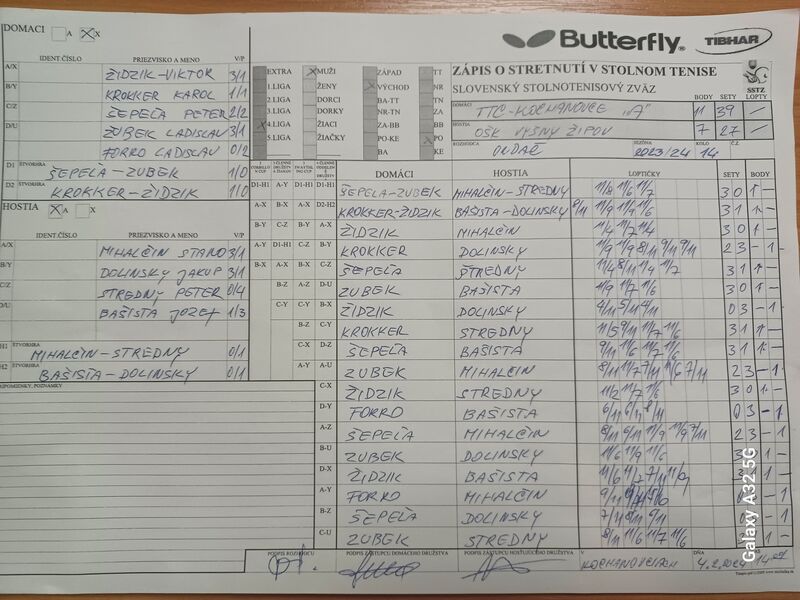 DOMACI A X
Butterfly
TIBHAR
IDENT.ČÍSLO PRIEZVISKO A MENO V/P
A/X ŽIDZIK-VIKTOR 3/1
B/Y KROKKER KAROL 1/1
C/Z ŠEPEĽA PETER 2/2
D/U ZUBEK LADISLAV 3/1
FORRO LADISLAV 0/2
D1 ŠTVORHRA ŠEPEĽA-ZUBEK 1/0
D2 ŠTVORHRA KROKKER-ŽIDZIK 1/0
HOSTIA A X
IDENT.ČÍSLO PRIEZVISKO A MENO V/P
A/X MIHALČIN STANO 3/1
B/Y DOLINSKY JAKUP 3/1
C/Z STREDNY PETER 0/4
D/U BAŠISTA JOZEF 1/3
H1 ŠTVORHRA MIHALČIN-STREDNY 0/1
H2 ŠTVORHRA BAŠISTA-DOLINSKY 0/1
PRIPOMIENKY, POZNÁMKY
EXTRA MUŽI ZÁPAD TT
1.LIGA ŽENY VÝCHOD NR
2.LIGA DORCI BA-TT TN
3.LIGA DORKY NR-TN ZA
4.LIGA ŽIACI ZA-BB BB
5.LIGA ŽIAČKY PO-KE PO
BA KE
ZÁPIS O STRETNUTÍ V STOLNOM TENISE
SLOVENSKÝ STOLNOTENISOVÝ ZVÄZ
SSTZ
BODY SETY LOPTY
DOMÁCI TTC-KOCHANOVCE "A" 11 39 /
HOSTIA OŠK VYŠNÝ ŽIPOV 7 27 /
ROZHODCA ONDAČ SEZÓNA 2023/24 KOLO 14
DOMÁCI HOSTIA LOPTIČKY SETY BODY
D1-H1 A-Y D1-H1 D1-H1 ŠEPEĽA-ZUBEK MIHALČIN-STREDNY 11/8 11/6 11/7 3 0 1 -
A-X B-X A-X D2-H2 KROKKER-ŽIDZIK BAŠISTA-DOLINSKY 8/11 11/9 11/9 11/6 3 1 1 -
B-Y C-Z B-Y A-X ŽIDZIK MIHALČIN 11/4 11/7 11/4 3 0 1 -
A-Y D1-H1 C-Z B-Y KROKKER DOLINSKY 11/9 11/9 8/11 9/11 9/11 2 3 - 1
B-X A-X B-X C-Z ŠEPEĽA STREDNY 11/4 8/11 11/9 11/7 3 1 1 -
B-Z A-Z D-U ZUBEK BAŠISTA 11/9 11/7 11/6 3 0 1 -
C-Y C-Y B-X ŽIDZIK DOLINSKY 4/11 5/11 4/11 0 3 - 1
B-Z C-Y KROKKER STREDNY 11/5 9/11 11/7 11/6 3 1 1 -
C-X D-Z ŠEPEĽA BAŠISTA 9/11 11/6 11/7 11/6 3 1 1 -
A-Y A-U ZUBEK MIHALČIN 2 3 - 1
C-X ŽIDZIK STREDNY 11/2 11/7 11/6 3 0 1 -
D-Y FORRO BAŠISTA 6/11 6/11 8/11 0 3 - 1
A-Z ŠEPEĽA MIHALČIN 8/11 6/11 11/9 11/9 7/11 2 3 - 1
B-U ZUBEK DOLINSKY 11/6 11/9 11/6
D-X ŽIDZIK BAŠISTA 11/6 11/7 7/11
A-Y FORRO MIHALČIN
B-Z ŠEPEĽA DOLINSKY 7/11 8/11 9/11
C-U ZUBEK STREDNY 8/11 11/6 11/7 11/6
PODPIS ROZHODCU PODPIS ZÁSTUPCU DOMÁCEHO DRUŽSTVA PODPIS ZÁSTUPCU HOSŤUJÚCEHO DRUŽSTVA V KOCHANOVCIACH DŇA 4.2.2024
Galaxy A32 5G